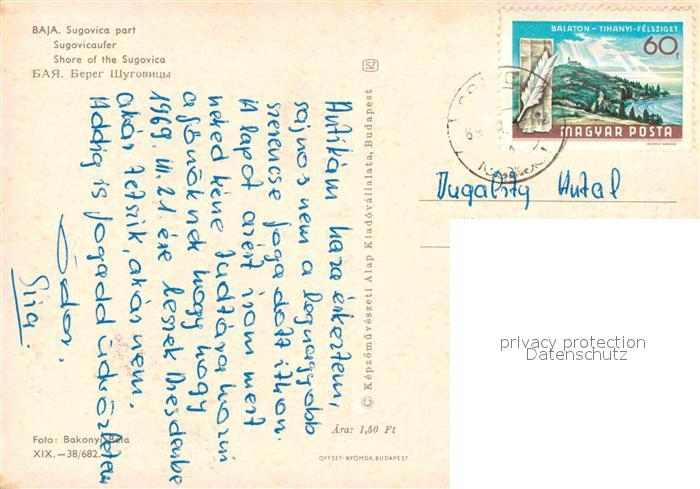 BAJA. Sugovica part
Sugovicaufer
Shore of the Sugovica
БАЯ. Берег Шуговицы
SZ
BALATON – TIHANYI-FÉLSZIGET
60f
MAGYAR POSTA
Antikám haza érkeztem,
sajnos nem a legnagyobb
szerencse fogadott itthon.
A lapot azért irom mert
neked kéne tudtára hozni
a főnöknek hogy hogy
1969. III. 21. ére leszek Dresdenbe
akár tetszik, akár nem.
Addig is fogadd üdvözletem
Ödön.
© Képzőművészeti Alap Kiadóvállalata, Budapest
Antal
privacy protection
Datenschutz
Foto: Bakonyi Béla
XIX.—38/682.
Ára: 1,50 Ft
OFFSET-NYOMDA, BUDAPEST